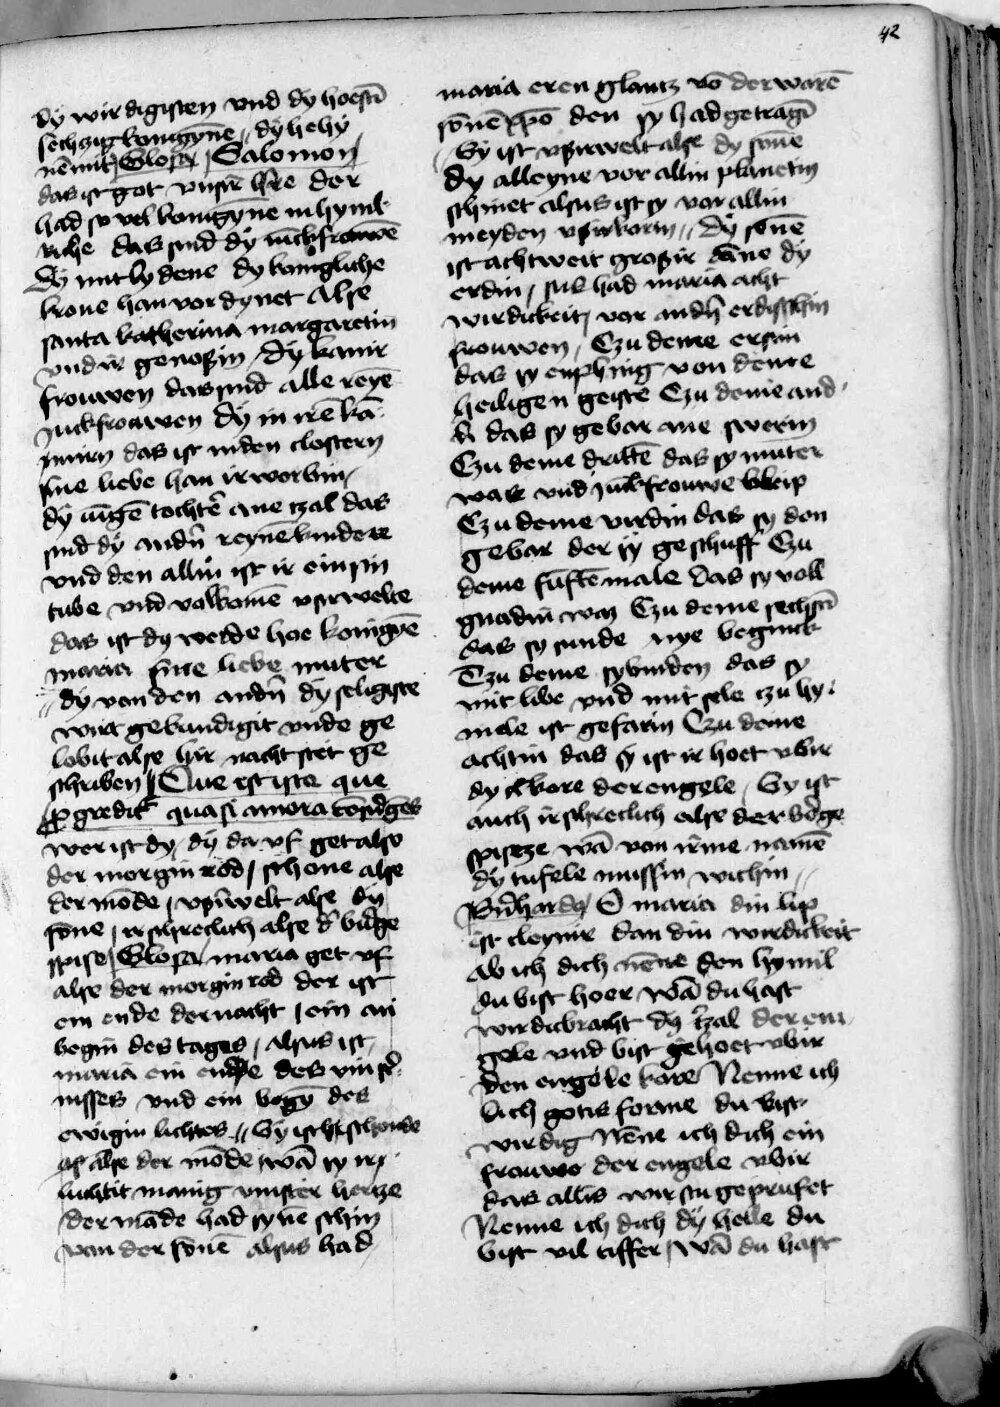 42
dy wirdigisten vnd dy hoestē
sechzig konigȳne // dy he hy
nēmit / Glosa / Salomon /
das ist got vnsir h're der
had so vel konigȳne in hymil-
riche das sind dy iūckfrauwē
Dy mit lydene dy konigliche
krone han vordynet Alse
santa katherina margaretin
vnd ir genosin / Dy kamir
frouwen das sind alle reyē
Juckfrouwen Dy in irē kā-
mirn das ist in den clostern
sine liebe han irworbin /
dy iūgē tochtē ane tzal das
sind dy andn̄ reynē kindere
vnd den allin ist ir ein sin
tube vnd volkomē vsirwelte
das ist dy werde hoe konigȳē
maria sine liebe muter
// dy von den andn̄ dy seligiste
wirt gekundigit vnde ge
lobit alse hir nacht stet ge
schriben / Que est iste que
progredit' quasi aurora consurgēs
wer ist dy / dy da vf get alse
der morgin rod / schone alse
der mōde / vsirwelt alse dy
sōne / irschreclich alse d' burge
spise / Glosa / maria get vf
alse der morgin rod der ist
ein ende der nacht / ein an
begin des tages / alsus ist
maria ein ende des vinst'-
nisses vnd ein begȳ des
ewigin lichtes // Sy ist schonde
alse der mōde / wā sy ir-
luchtit manig vinster hertze
der māde had synē schin
von der sōnē alsus had
maria eren glantz vō der warē
sōnē xp̄o den sy had getragī
// Sy ist vsirwelt alse dy sōne
dy alleyne vor allin planetin
schinet alsus ist sy vor allin
meyden vsirkorin // dy sōne
ist achtweit grosir dāne dy
erdin / sus had maria acht
wirdickeit / vor andn̄ erdisschin
frouwen / Czu deme ersin
das sy enphing von deme
heiligen geiste Czu deme and-
n̄ das sy gebar ane swerin
Czu deme drittē das sy muter
was vnd Juckfrouwe bleip
Czu deme virdin das sy den
gebar der sy geschuff Czu
deme funftē male das sy voll
gnadin was Czu deme sechstē
das sy sunde nye beginck
Czu deme sybinden das sy
mit libe vnd mit sele czu hy-
mele ist gefarin Czu deme
achtin das sy ist ir hoet vbir
dy kore der engele / Sy ist
auch irschreclich alse der bōge
spitze wā von irme namē
dy tufele mussin wichin //
Bn̄hard9 / O maria din lip
ist cleynir dan din wirdickeit
Ab ich dich nēne den hymil
du bist hoer wā du hast
wirdicbracht dy tzal der en-
gele vnd bist gehoet vbir
den engele kore Nenne ich
dich gotis forme du bist
wirdig Nēne ich dich ein
frouwe der engele vbir
das allis wirstu geprufet
Nenne ich dich dy helle du
bist vil tiffer / wā du hast